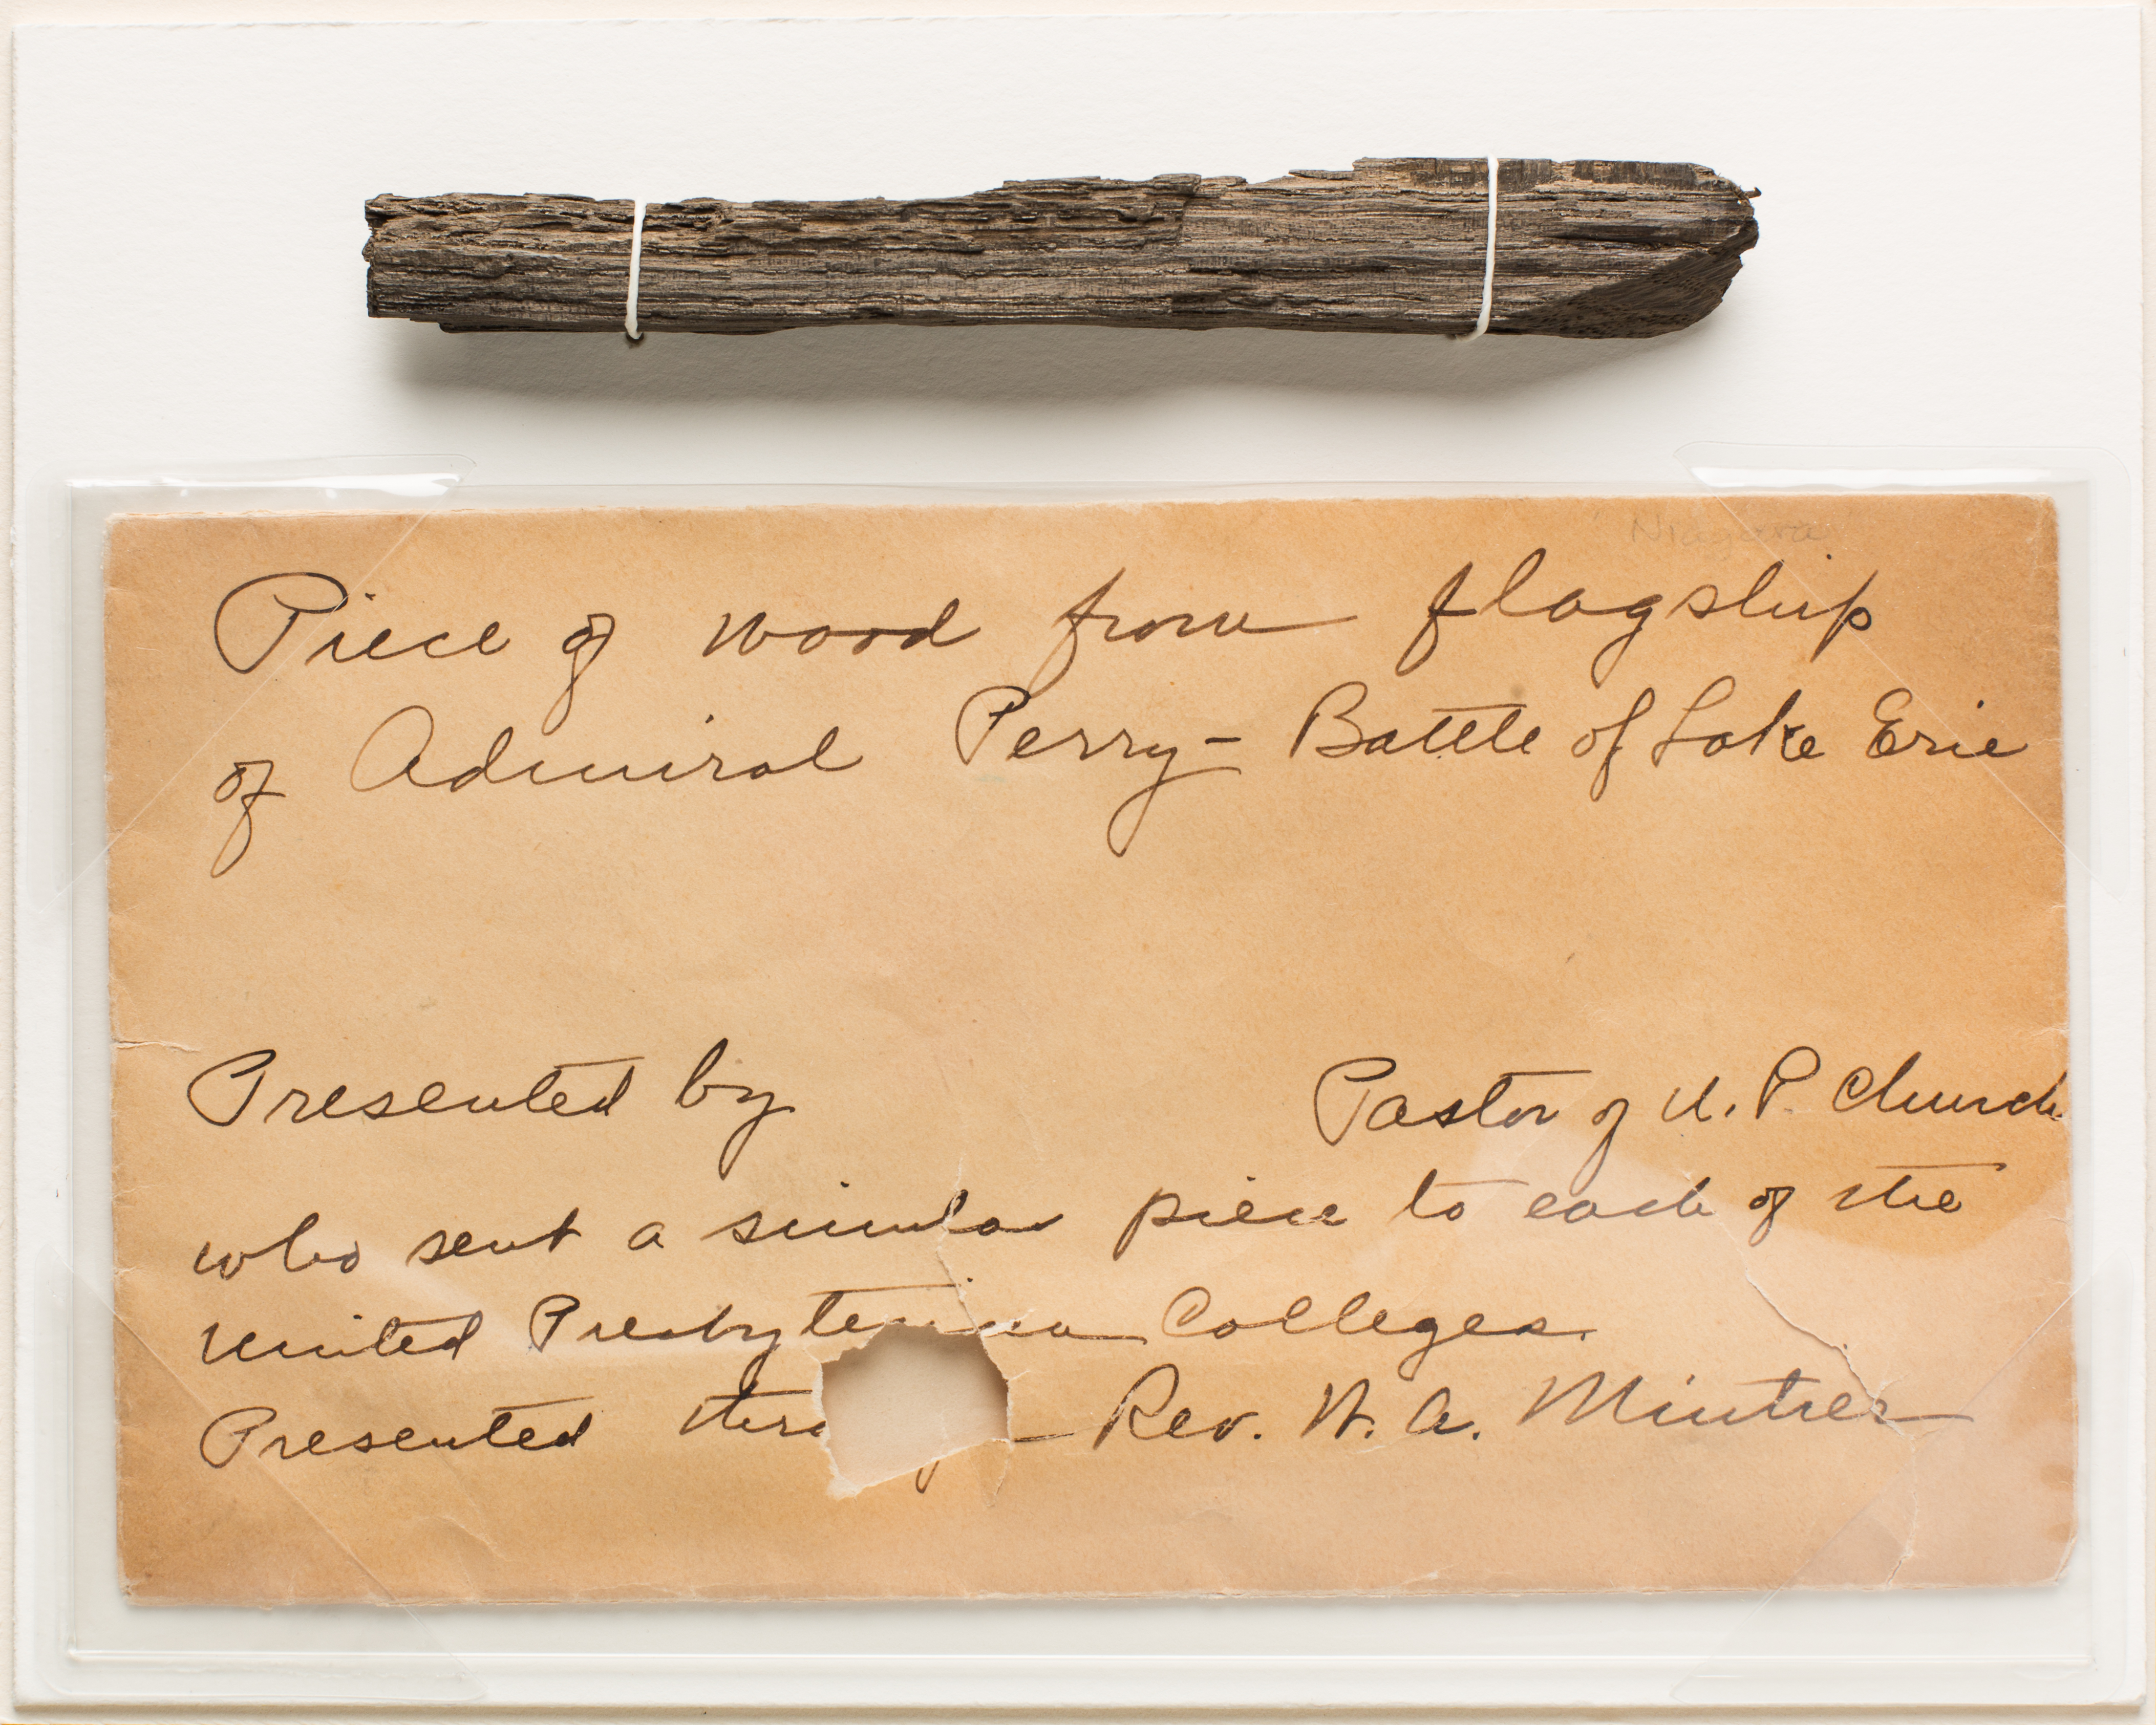 "Niagara"
Piece of wood from flagship
of Admiral Perry - Battle of Lake Erie
Presented by Pastor of U. P. Church
who sent a similar piece to each of the
United Presbyterian Colleges.
Presented thro Rev. W. A. Mintier